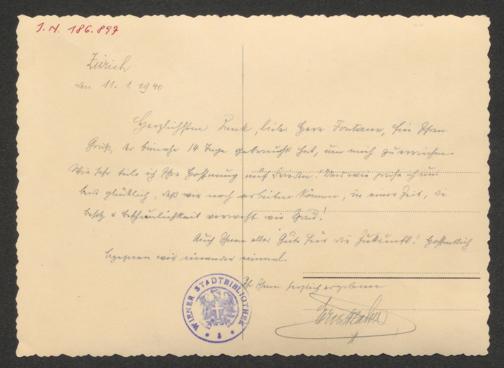 J.N. 186.897
Zürich
den 11.1.1940
Herzlichsten Dank, lieber Herr Fontana, für Ihren
Gruß, der beinahe 14 Tage gebraucht hat, um mich zu erreichen.
Wie sehr teile ich Ihre Hoffnung auf Frieden! Und wie
glücklich, daß wir noch arbeiten können, in einer Zeit, da
Besitz u. Beschaulichkeit verweht wie Sand!
Auch Ihnen alles Gute für die Zukunft! Hoffentlich
begegnen wir einander einmal.
Ihr Ihnen herzlich ergebener
WIENER STADTBIBLIOTHEK